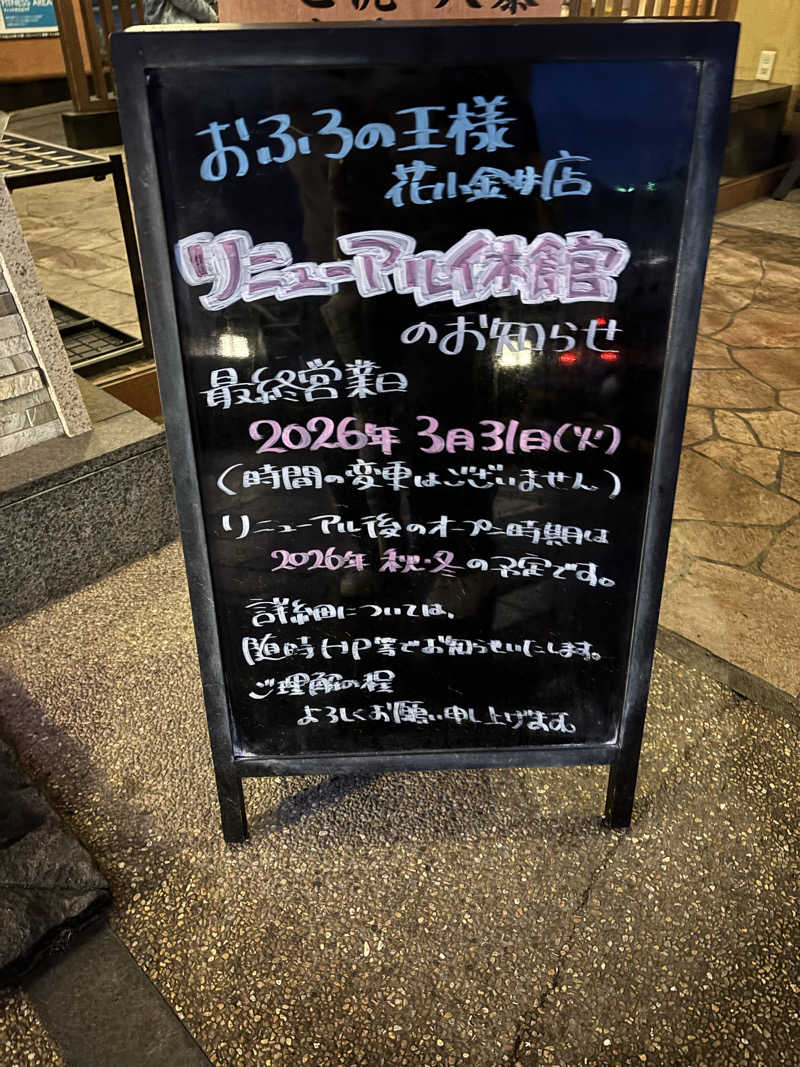 FITNESS AREA
おふろの王様
花小金井店
リニューアル休館
のお知らせ
最終営業日
2026年 3月31日(火)
(時間の変更はございません)
リニューアル後のオープン時期は
2026年 秋・冬の予定です。
詳細については、
随時HP等でお知らせいたします。
ご理解の程
よろしくお願い申し上げます。